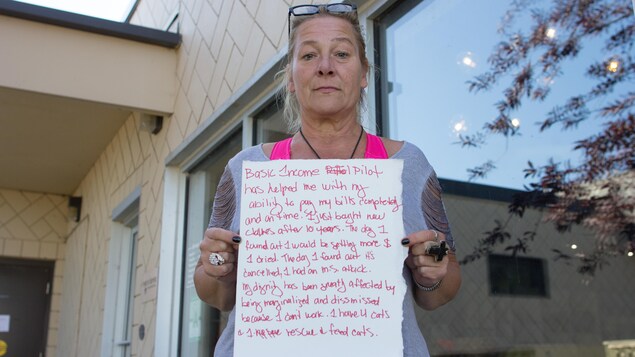 Basic Income Pilot
has helped me with my
ability to pay my bills completely
and on time. I just bought new
clothes after 10 years. The day I
found out I would be getting more $
I cried. The day I found out it's
cancelled, I had an m.s. attack.
My dignity has been greatly affected by
being marginalized and dissmissed
because I can't work. I have 4 cats
rescue & feral cats.